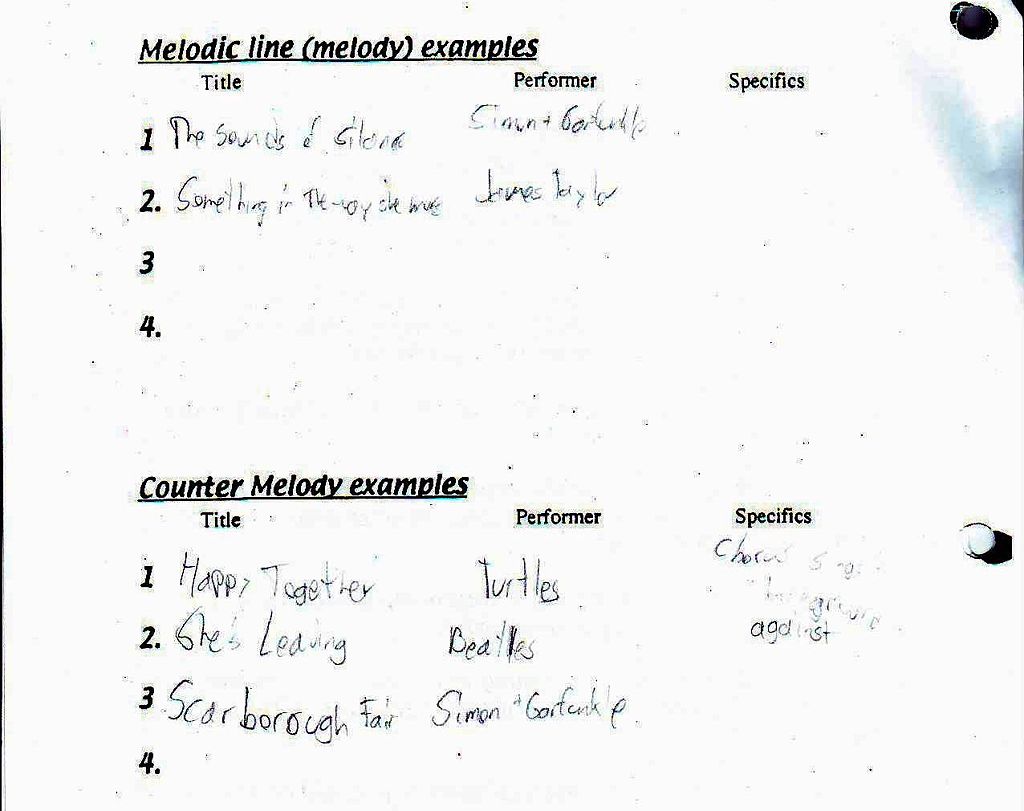 Melodic line (melody) examples
Title Performer Specifics
1 The Sounds of Silence Simon + Garfunkle
2. Something in The way she moves James Taylor
3
4.
Counter Melody examples
Title Performer Specifics
1 Happy Together Turtles Chorus
2. She's Leaving Beatles against
3 Scarborough Fair Simon + Garfunkle
4.